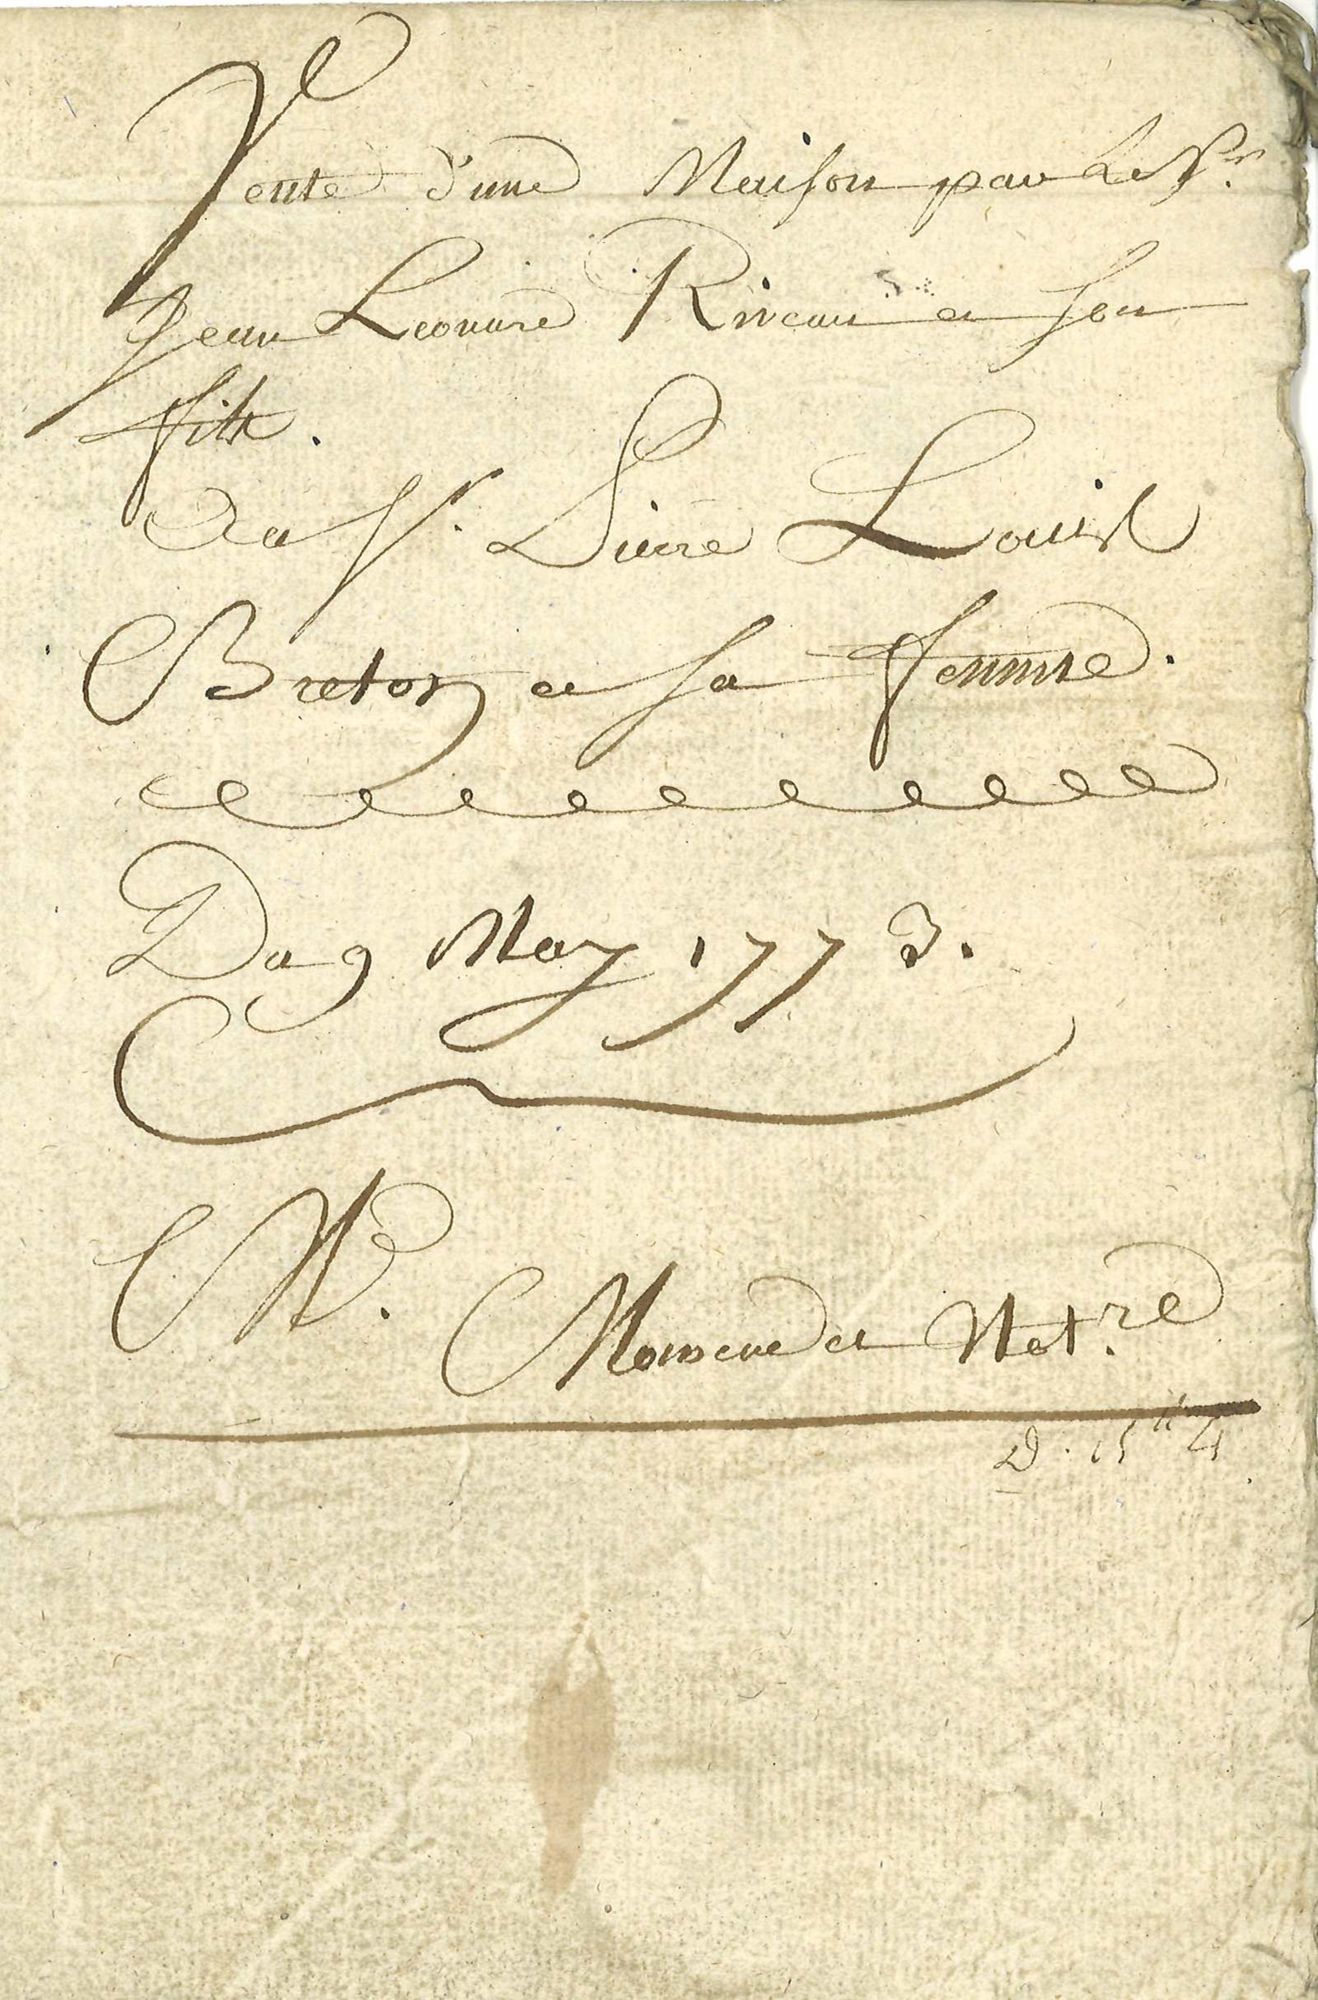 Vente d'une Maison par le Sr.
Jean Leonard Riveau et son
fils.
Au Sr. Pierre Louis
Breton et sa femme.
Du 9 May 1773.
Me.
Notre
D. 15" 4